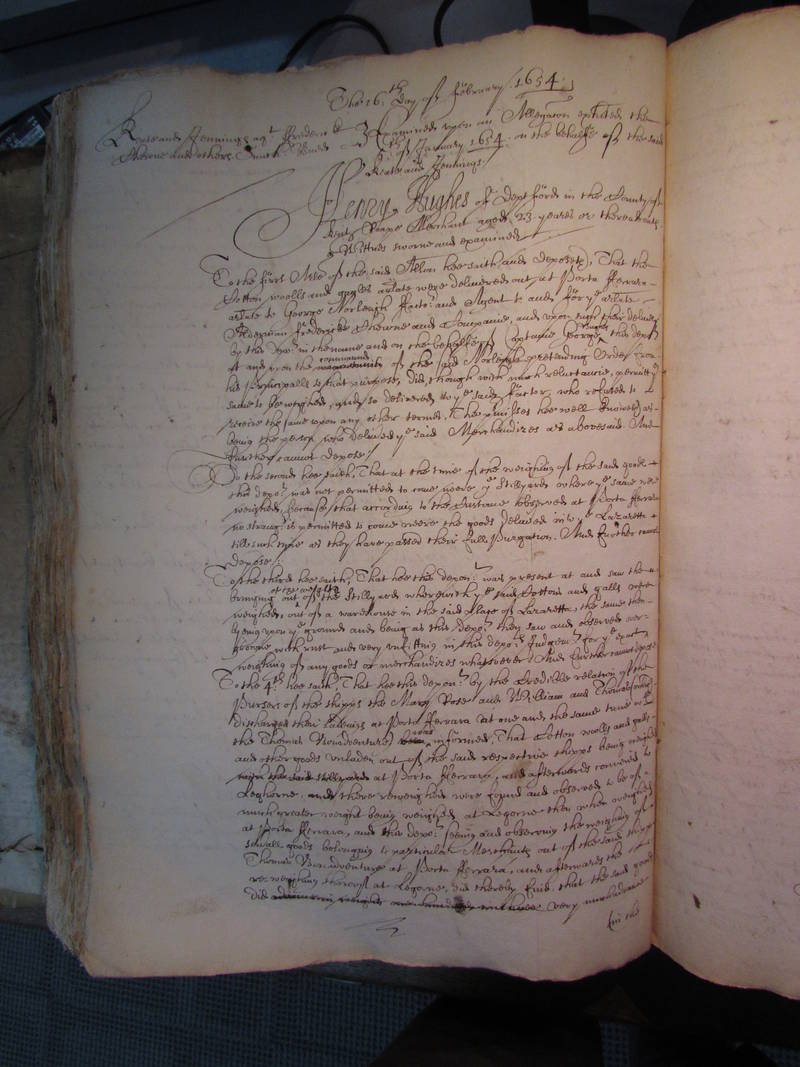 The 16th Day of ffebruary. 1654.
Keate and Jennings agt ffrederick Examined upon an Allegaton exhibited the
Sherne and others. Smith of January 1654 on the behalfe of the said
Keate and Jennings
Henry Hughes of Deptford in the County of
Kent Merchant aged 23 yeares or thereabouts
a Wittnes sworne and examined
To the first Arle of the said Allon hee saith and deposeth, That the
Cotton woolls and galles arlate were delivered out at Porta fferrara
arlate to George Northleigh ffactor and Agent to and for ye arlate
Alderman ffrederick Sherne and Companie, and upon such their delivery
by this depot in the name and on the behalfe of Captaine George Hughes this depots
at and upon the commands of the said Northleigh pretending Order from
his Principalls to that purpose, did, though with much reluctancie, permitt ye
same to be weighed, and so delivered to ye said ffactor, who refused to
receive the same upon any other termes, The premisses hee well knoweth as
being the person who delivered ye said Merchandizes as abovesaid. And
further cannot depose./
To the second hee saith, That at the time of the weighing of the said goods
this depot was not permitted to come neere ye Stillyards where ye same were
weighed, because that according to the Custome observed at Porta fferrara
no stranger is permitted to come neere the goods delivered into ye Lazaretta
till such time as they have passed their full Purgation. And further cannot
depose./
To the third hee saith, That hee this deponent was present at and saw the
bringing out of the Stillyards wherewith ye said Cottons and galls were
weighed, out of a warehouse in the said place of Lazaretta, the same then
lying upon ye ground and being as this depot then saw and observed over-
growne with rust and very unfitting in this depots Judgemt for ye exact
weighing of any goods or merchandizes whatsoever. And further cannot depose
To the 4th hee saith, That hee this deponent by the Credible relation of the
Pursers of the shipps the Mary Rose and William and Thomas
discharged their ladeings at Porta fferrara at one and the same time with
the Thomas Bonadventure was informed, That Cotton woolls and galls
and other goods unladen out of the said respective shipps being weighed
at Porta fferrara, and afterwards conveied to
Leghorne and there reweighed were found and observed to be of
much greater weight being weighed at Legorne then when weighed
at Porta fferrara, and this depot seeing and observing the weighing of
severall goods belonging to particular Merchants out of the said shipp
Thomas Bonadventure at Porta fferrara, and afterwards the
re-weighing thereof at Legorne, did thereby find, that the said goods
did very much
in the